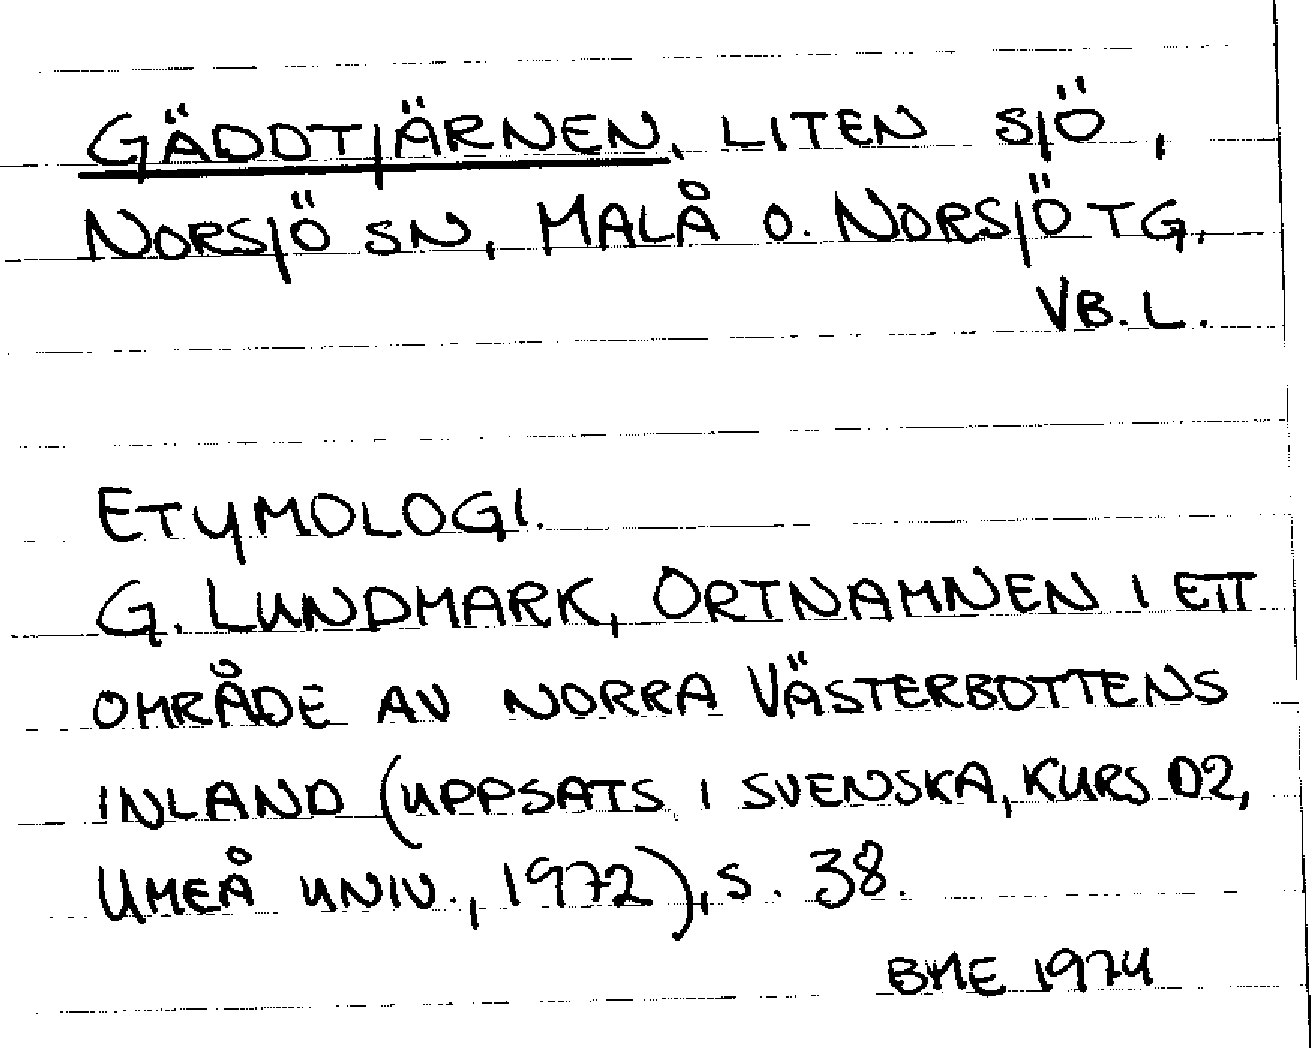 GÄDDTJÄRNEN, LITEN SJÖ,
NORSJÖ SN, MALÅ O. NORSJÖ TG,
VB.L.
ETYMOLOGI.
G. LUNDMARK, ORTNAMNEN I ETT
OMRÅDE AV NORRA VÄSTERBOTTENS
INLAND (UPPSATS I SVENSKA, KURS D2,
UMEÅ UNIV., 1972), S. 38.
BME 1974